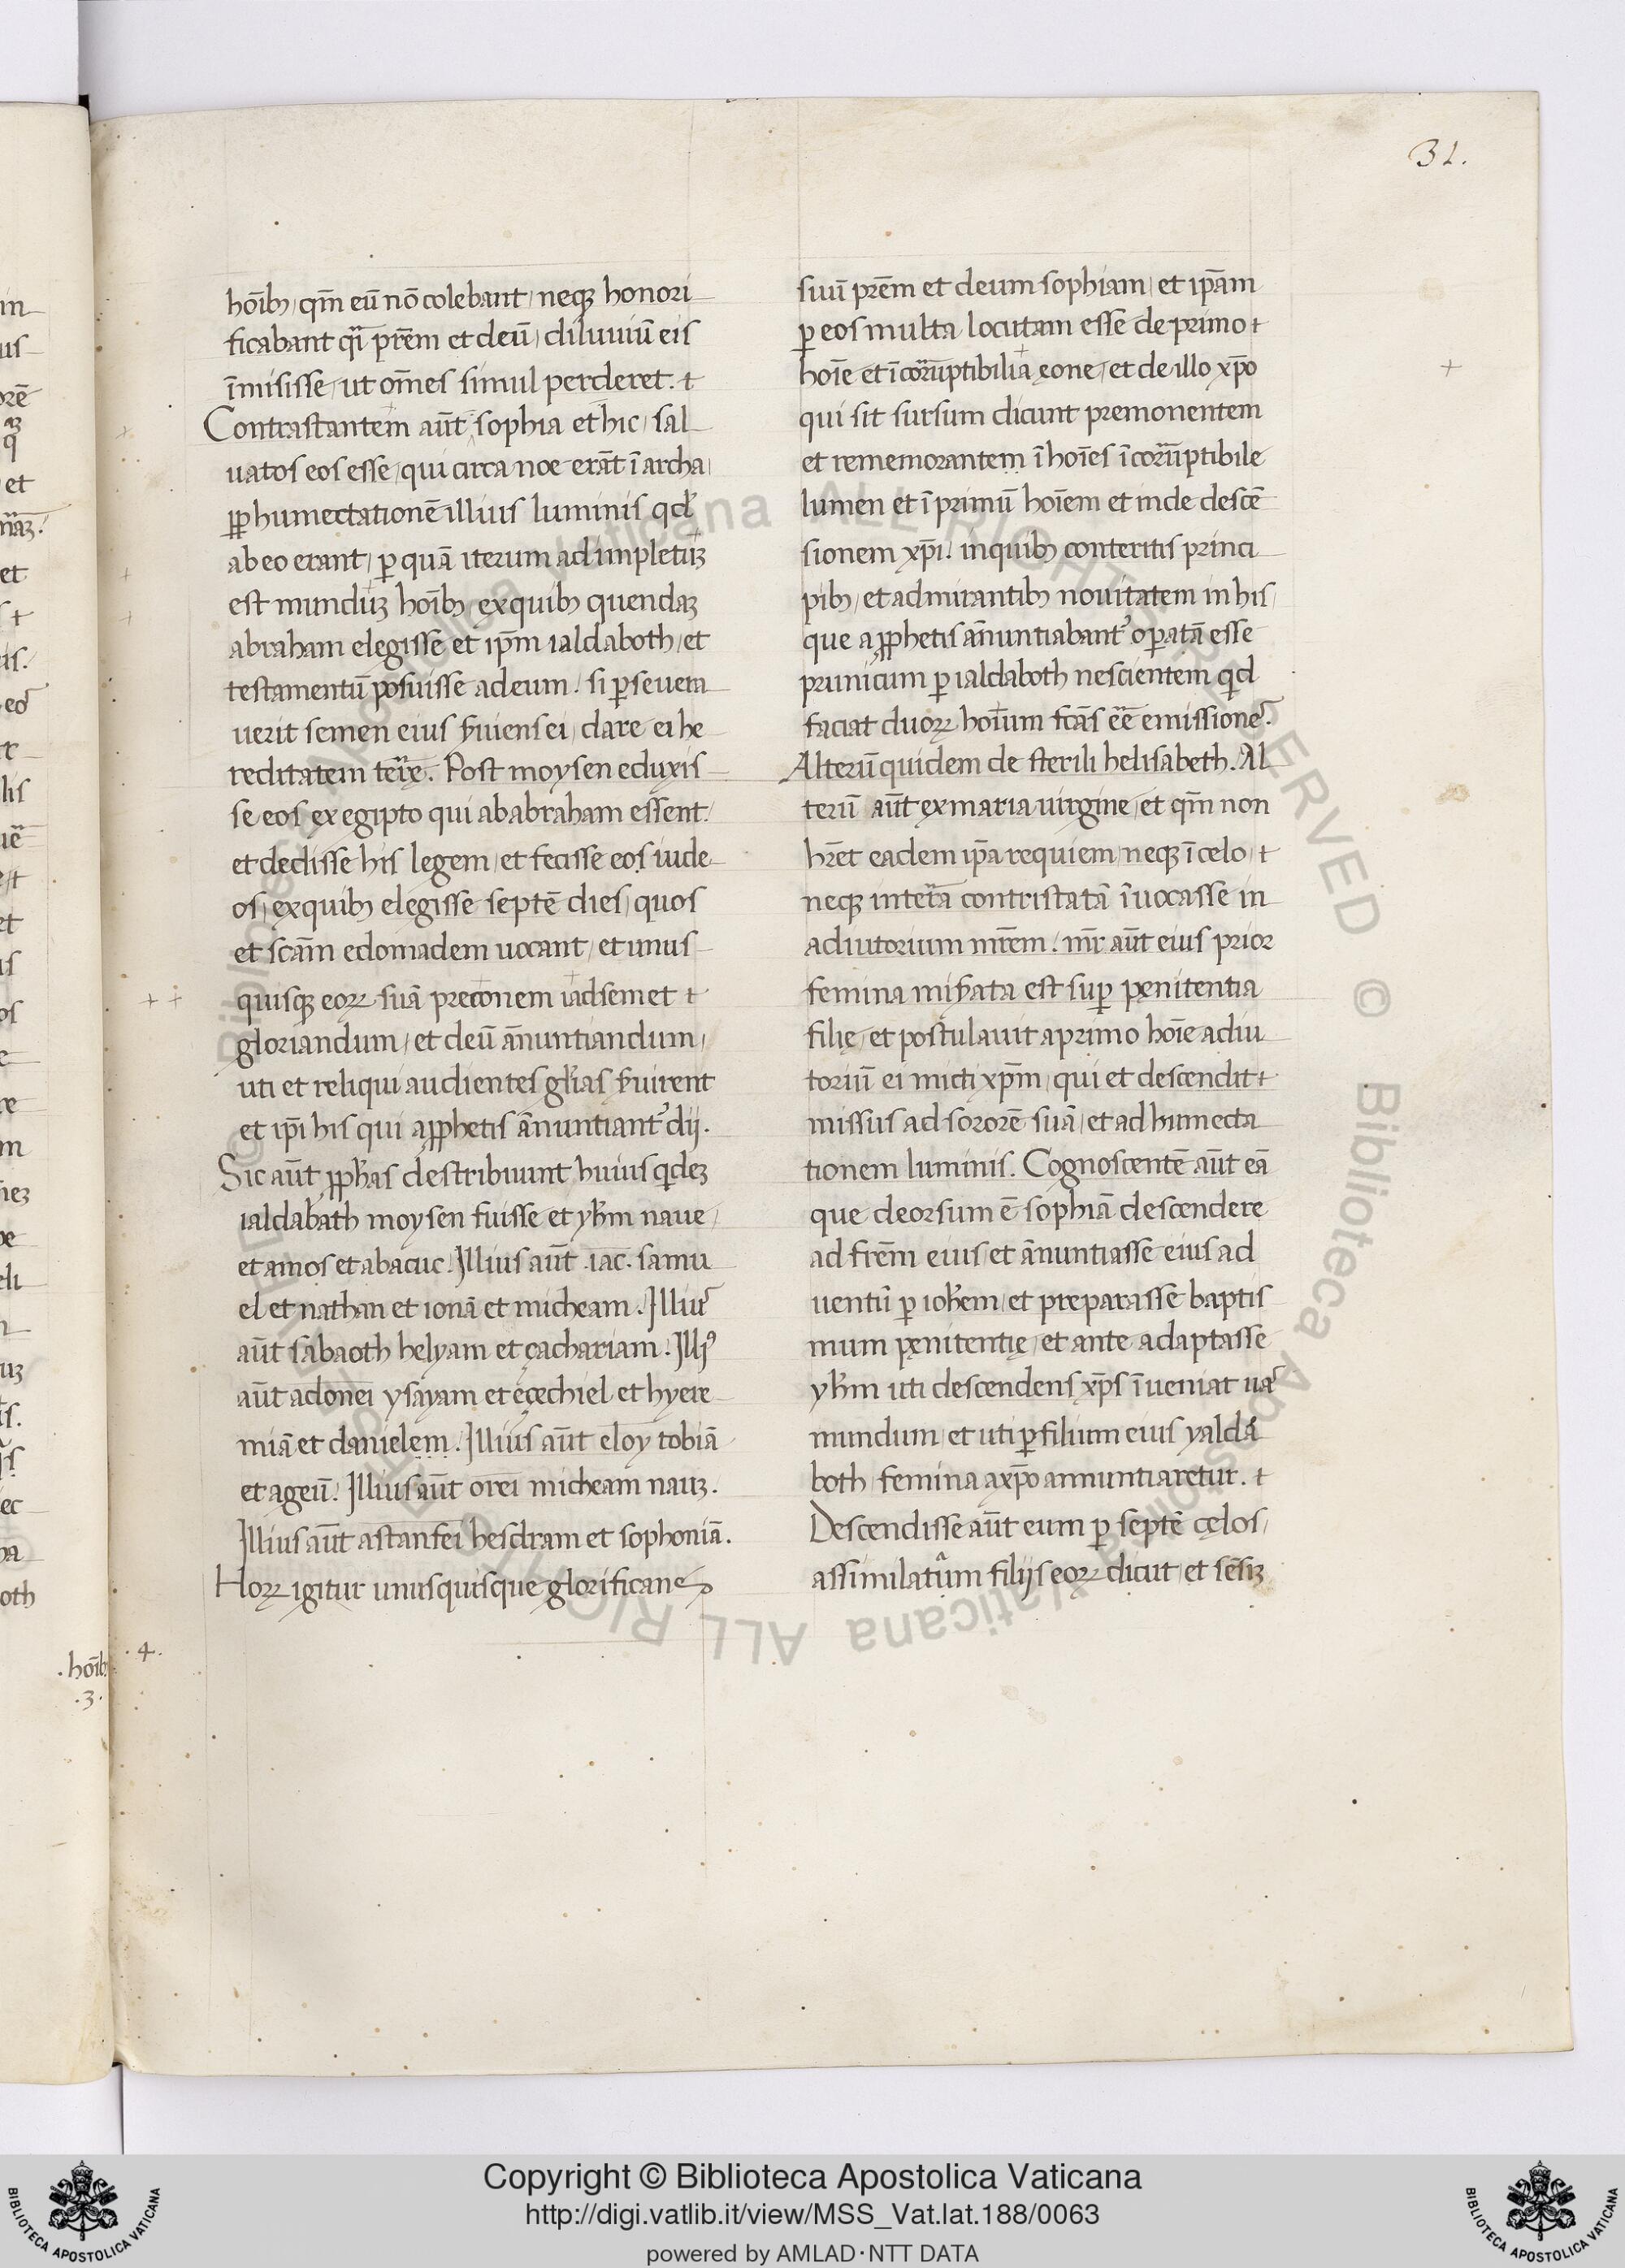 31.
hoīb, qm̄ eū nō colebant, neq; honori
ficabant q̄i prēm et deū, diluuiū eis
īmisisse, ut om̄es simul perderet. +
Contrastantem aūt sophia et hic, sal
uatos eos esse, qui circa noe erāt ī archa,
ꝓ humectationē illius luminis qđ
ab eo erant, ꝑ quā iterum ad impletuȝ
est munduȝ hoīb, ex quib, quendaȝ
abraham elegisse et ip̄m ialdaboth, et
testamentū posuisse ad eum. si ꝑseuera
uerit semen eius s̄uiens ei, dare ei he
reditatem terr̄ę. Post moysen eduxis
se eos ex egipto qui ab abraham essent.
et dedisse his legem, et fecisse eos iude
os, ex quib, elegisse septē dies, quos
et scām edomadem uocant, et unus
quisq; eoꝝ suā preconem iadsemet +
gloriandum, et deū ānuntiandum,
uti et reliqui audientes gl̄ias s̄uirent
et ip̄i his qui a ꝓphetis ānuntiant᾽ dij.
Sic aūt ꝓph̄as destribuunt huius qdeȝ
ialdabath moysen fuisse et yh̄m naue,
et amos et abacuc. Illius aūt .iac. samu
el et nathan et ionā et micheam. Illius
aūt sabaoth helyam et çachariam. Illiꝰ
aūt adonei ysayam et eçechiel et hyere
miā et danielem. Illius aūt eloy tobiā
et ageū. Illius aūt orei micheam nauȝ.
Illius aūt astanfei hesdram et sophoniā.
Hoꝝ igitur unusquisque glorificans
suū prēm et deum sophiam, et ip̄am
ꝑ eos multa locutam esse de primo +
hoīe et īcorr̄uptibilia ęone, et de illo xp̄o
qui sit sursum dicunt premonentem
et rememorantem ī hoīes īcorr̄uptibile
lumen et ī primū hoīem et inde descē
sionem xp̄i. in quib, conteritis princi
pib, et admirantib, nouitatem in his,
que a ꝓphetis ānuntiabant᾽ oꝑatā esse
prunicum ꝑ ialdaboth nescientem qd
faciat duoꝝ hoīum fcās eē emissiones.
Alterū quidem de sterili helisabeth. Al
terū aūt ex maria uirgine, et qm̄ non
hr̄et eadem ip̄a requiem, neq; ī celo, +
neq; in terr̄a contristatā īuocasse in
adiutorium mr̄em. mr̄ aūt eius prior
femina mis̄ata est suꝑ pęnitentia
filię, et postulauit a primo hoīe adiu
toriū ei micti xp̄m, qui et descendit +
missus ad sororē suā, et ad humecta
tionem luminis. Cognoscentē aūt eā
que deorsum ē sophiā descendere
ad frēm eius et ānuntiasse eius ad
uentū ꝑ ioh̄em, et preparasse baptis
mum pęnitentię, et ante adaptasse
yh̄m uti descendens xp̄s īueniat uas
mundum, et uti ꝑ filium eius yalda
both femina a xp̄o annuntiaretur. +
Descendisse aūt eum ꝑ septē cęlos,
assimilatum filijs eoꝝ dicut, et sēsiȝ
.4.
.hoīb,
.3.
Copyright © Biblioteca Apostolica Vaticana
http://digi.vatlib.it/view/MSS_Vat.lat.188/0063
powered by AMLAD·NTT DATA